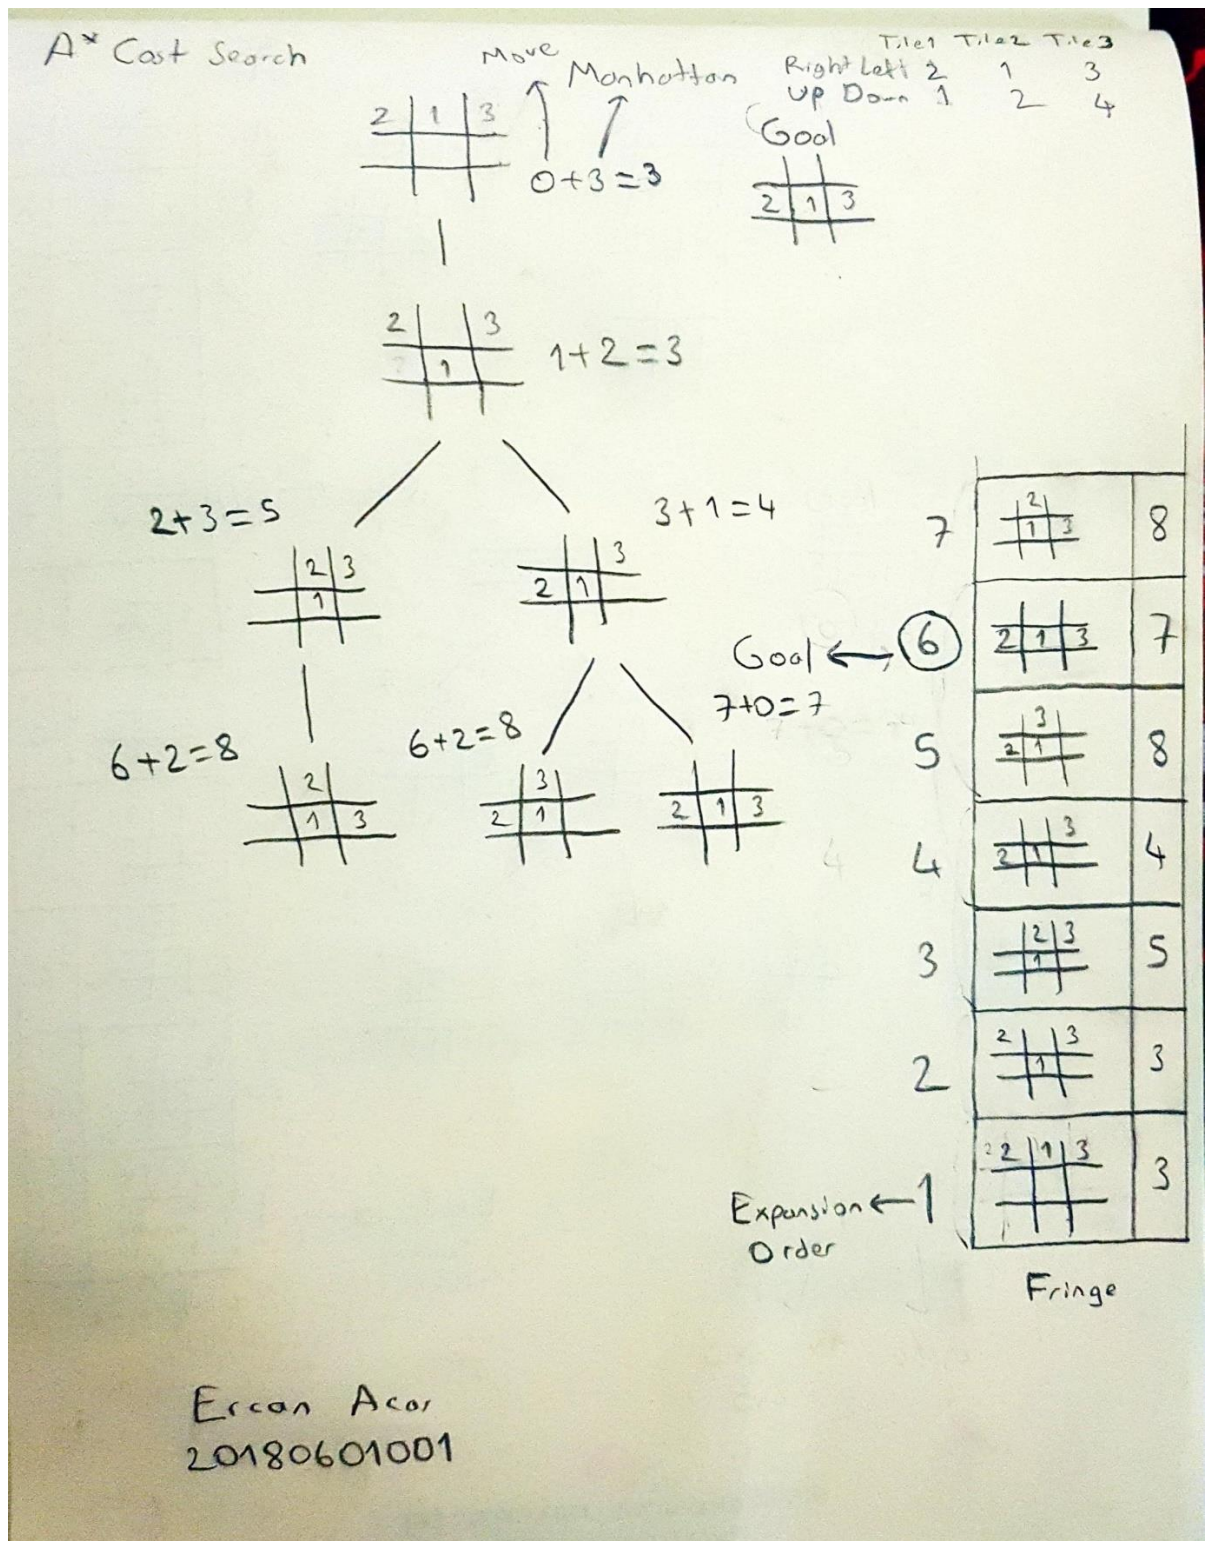 A* Cost Search
Move
Manhattan
Tile1 Tile2 Tile3
Right Left 2 1 3
Up Down 1 2 4
2 1 3
0+3=3
Goal
2 1 3
2 3
1
1+2=3
2+3=5
2 3
1
3+1=4
3
2 1
6+2=8
2
1 3
6+2=8
3
2 1
Goal ←
7+0=7
2 1 3
7
2
1 3
8
6
2 1 3
7
5
3
2 1
8
4
3
2 1
4
3
2 3
1
5
2
2 3
1
3
Expansion ← 1
Order
2 1 3
3
Fringe
Ercan Acar
20180601001